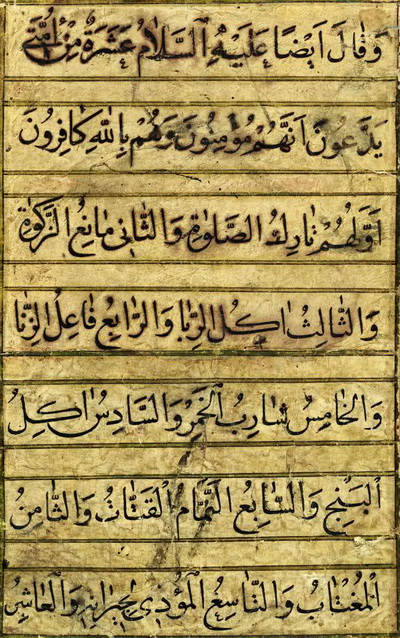 وَقَالَ اَيْضًا عَلَيْهِ السَّلَامُ عَشَرَةٌ مِنْ اُمَّتِي
يَدَّعُونَ اَنَّهُمْ مُؤْمِنُونَ وَهُمْ بِاللّٰهِ كَافِرُونَ
اَوَّلُهُمْ تَارِكُ الصَّلٰوةِ وَالثَّانِي مَانِعُ الزَّكٰوةِ
وَالثَّالِثُ اٰكِلُ الرِّبَا وَالرَّابِعُ فَاعِلُ الزِّنَا
وَالْخَامِسُ شَارِبُ الْخَمْرِ وَالسَّادِسُ اٰكِلُ
الْبَنِجِ وَالسَّابِعُ النَّمَّامُ الْقَتَّاتُ وَالثَّامِنُ
الْمُغْتَابُ وَالتَّاسِعُ الْمُؤْذِي بِجِيرَانِهِ وَالْعَاشِرُ